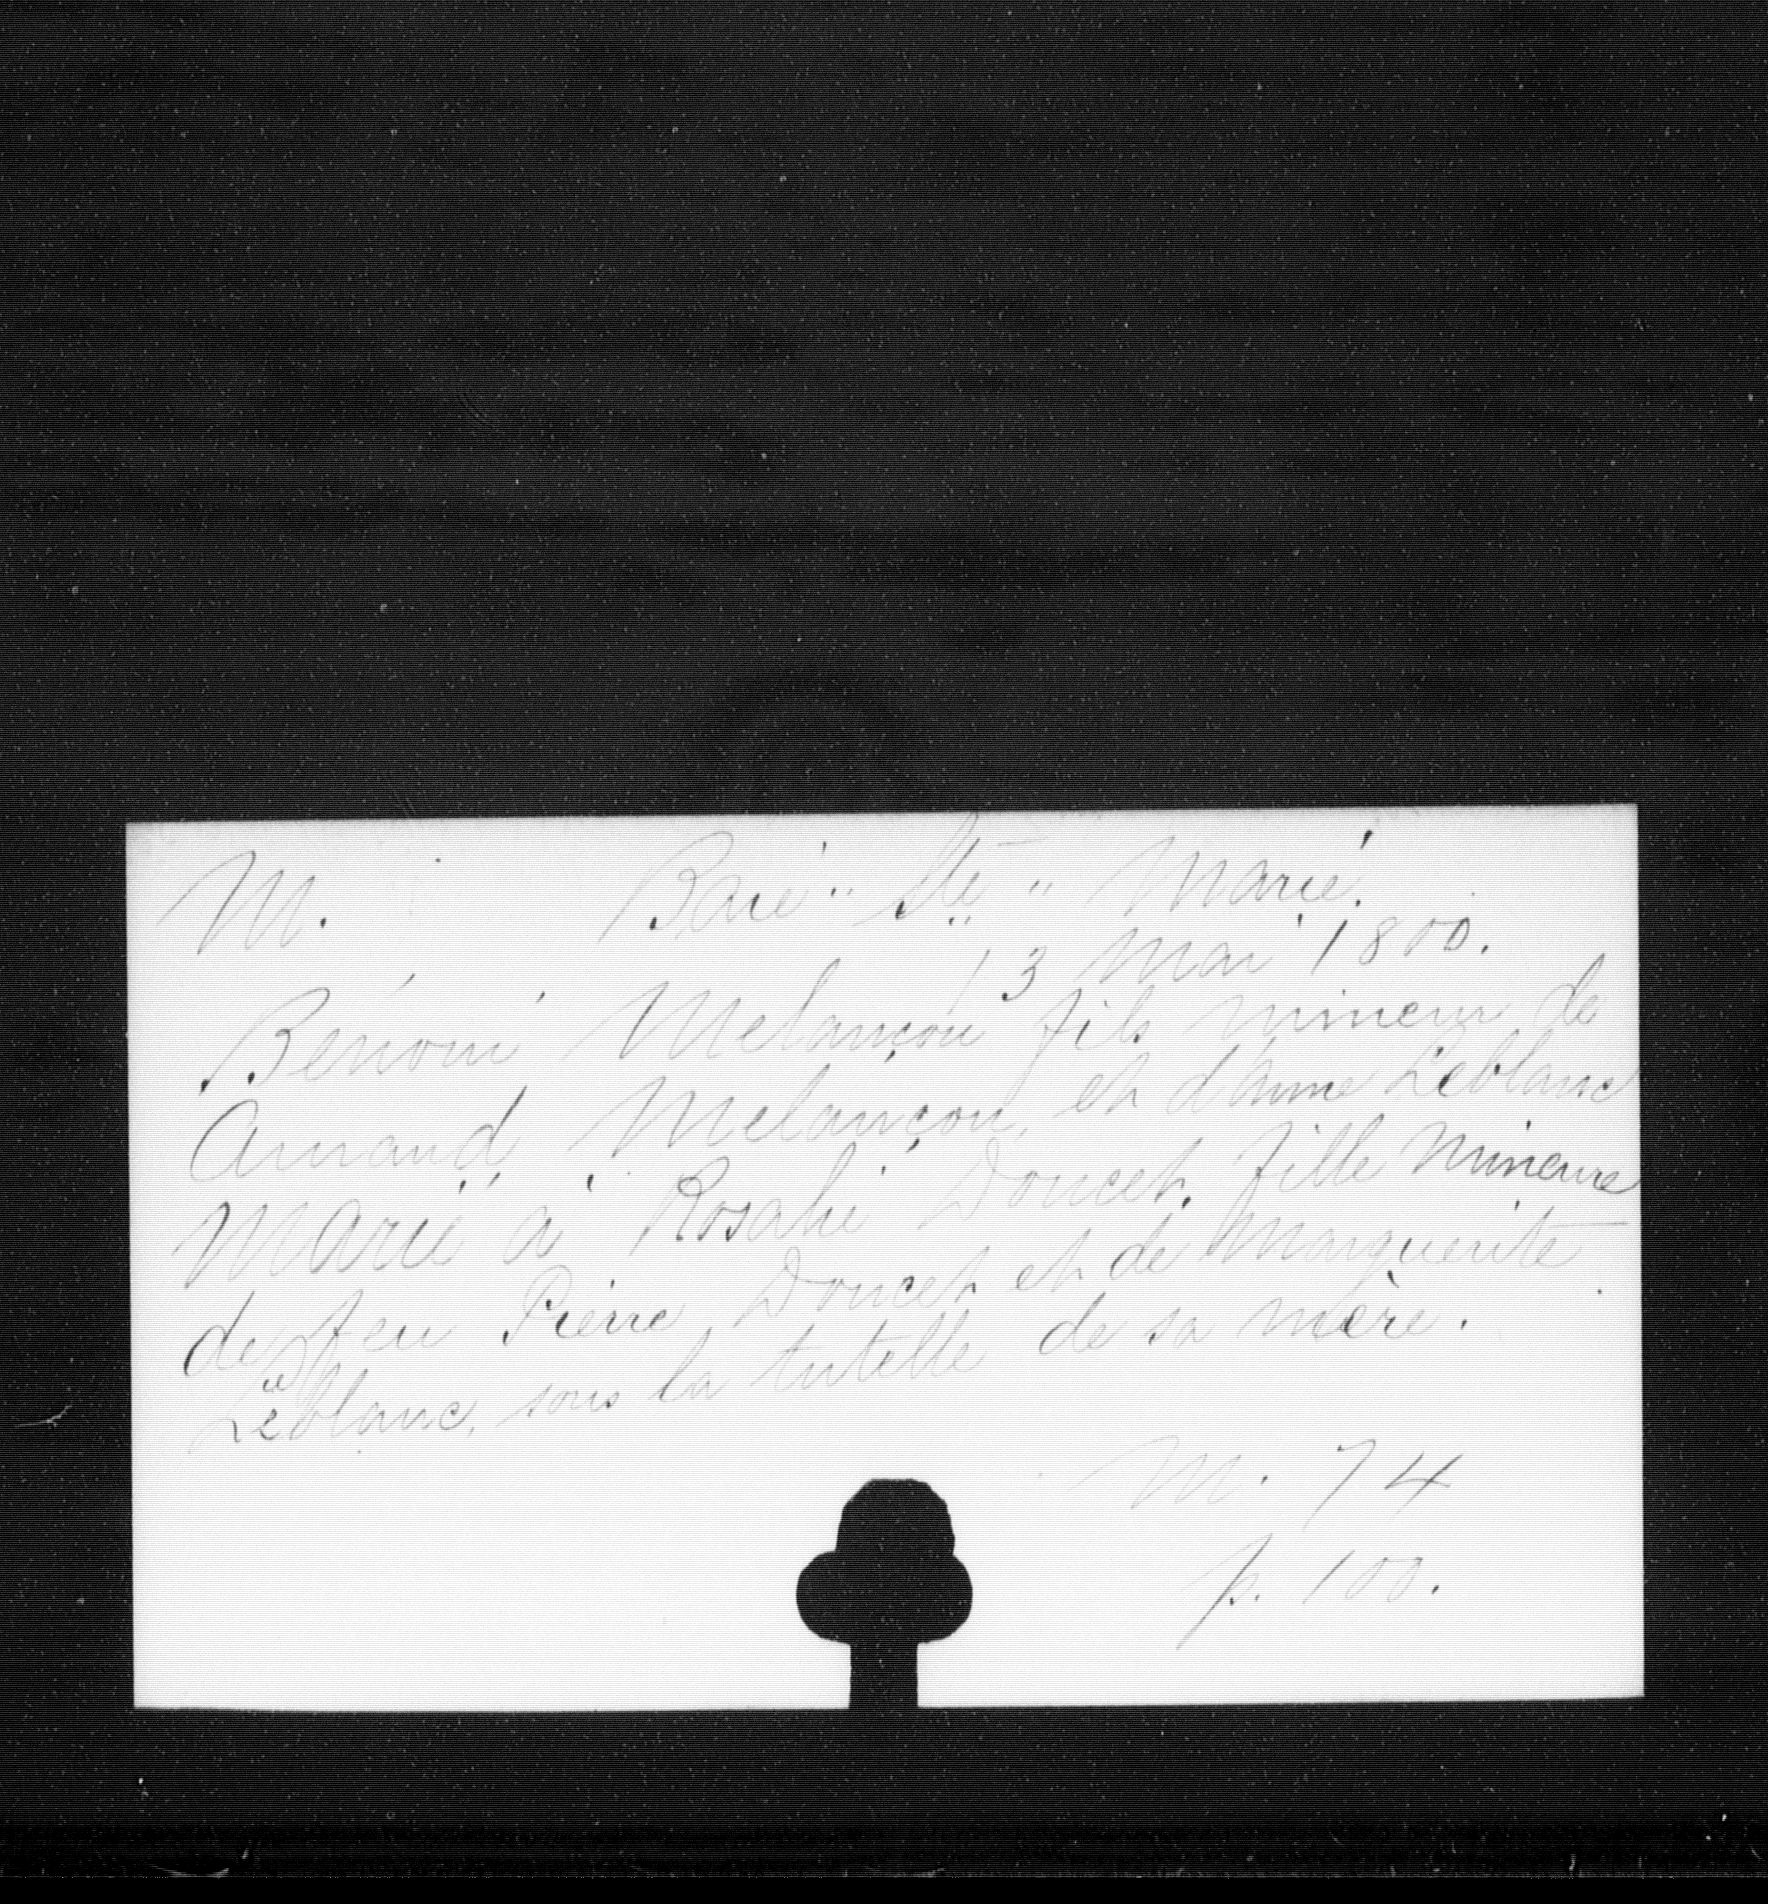 M. Baie Ste Marie.
13 Mai 1800.
Bénoni Melançon fils mineur de
Amand Melançon, et d'Anne Leblanc
Marié à Rosalie Doucet, fille mineure
de feu Pierre Doucet et de Marguerite
Leblanc, sous la tutelle de sa mère.
M. 74
p. 100.